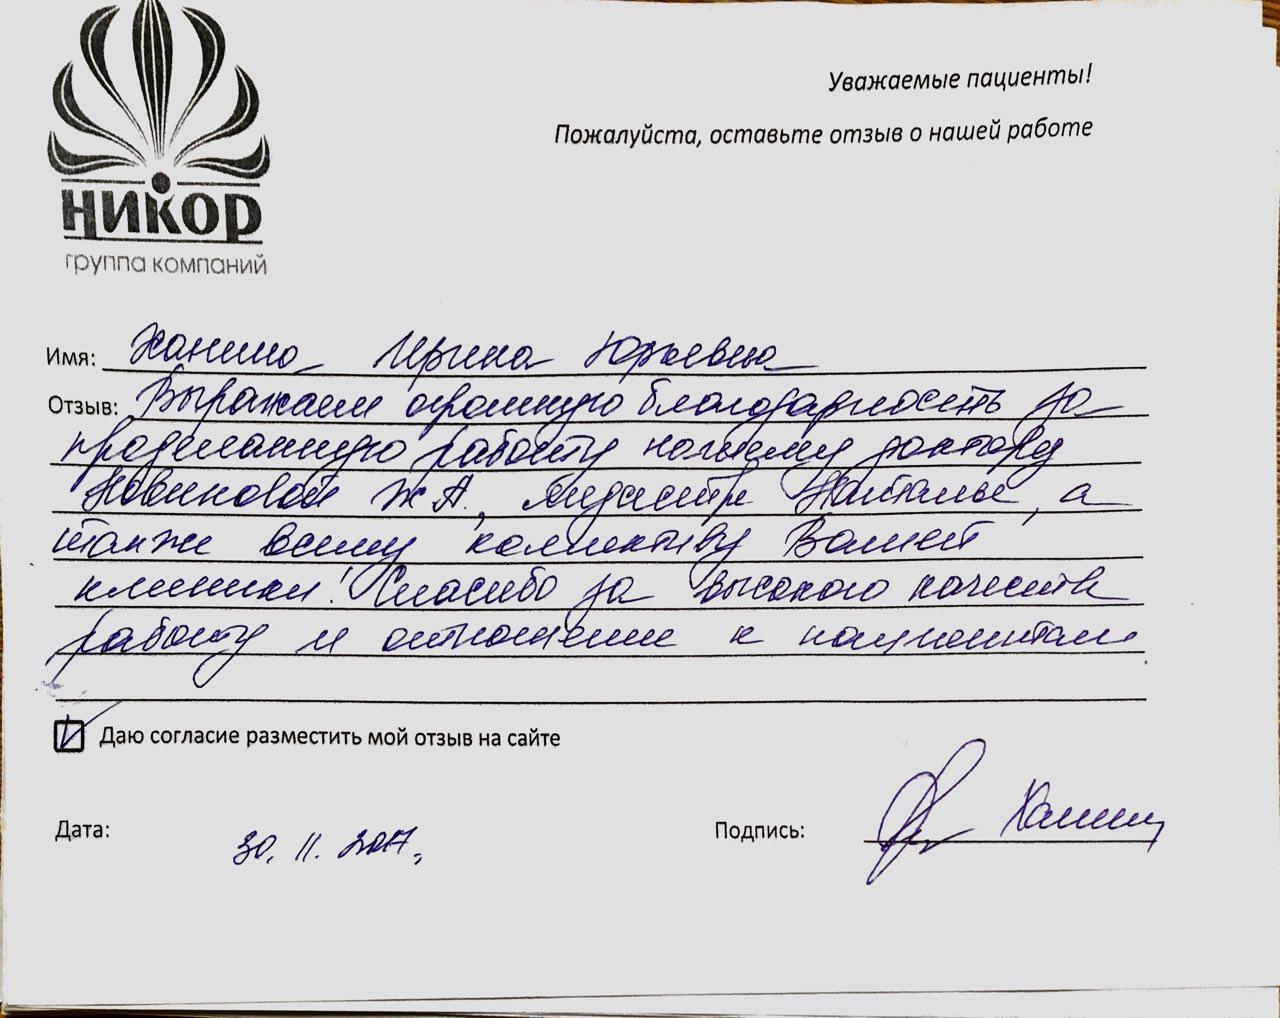 НИКОР
группа компаний
Уважаемые пациенты!
Пожалуйста, оставьте отзыв о нашей работе
Имя: Ханина Ирина Юрьевна
Отзыв: Выражаем огромную благодарность за
проделанную работу нашему доктору
Новиковой Ж.А., медсестре Наталье, а
также всему коллективу Вашей
клиники! Спасибо за высокого качества
работу и отношение к пациентам
Даю согласие разместить мой отзыв на сайте
Дата: 30.11.2017.
Подпись: Ханина